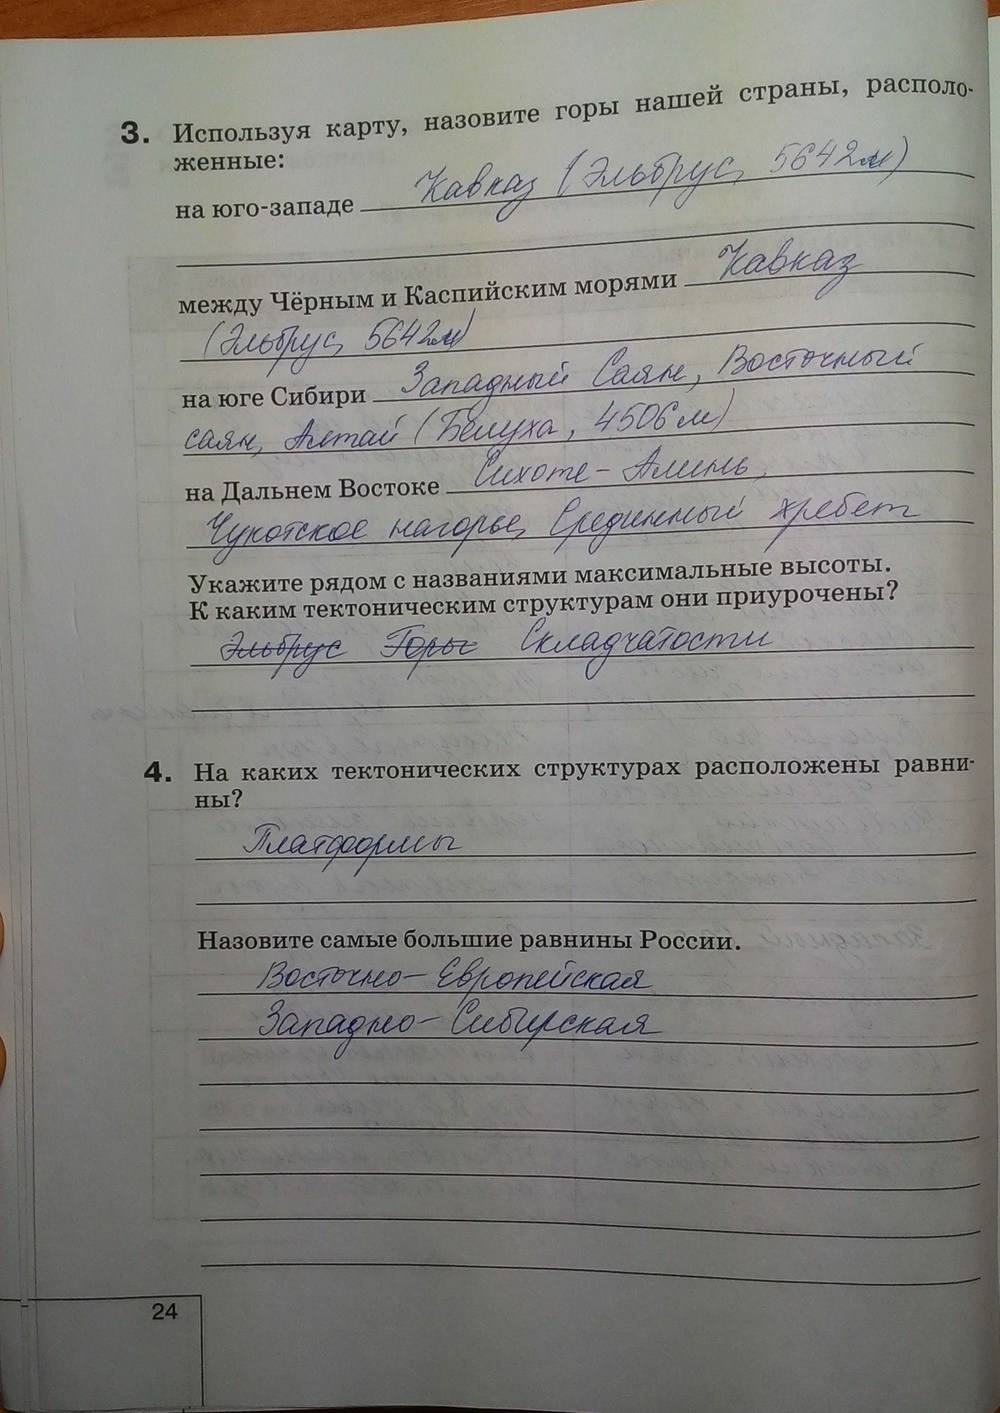 3. Используя карту, назовите горы нашей страны, располо-
женные:
на юго-западе Кавказ (Эльбрус, 5642м)
между Чёрным и Каспийским морями Кавказ
(Эльбрус, 5642м)
на юге Сибири Западный Саян, Восточный
саян, Алтай (Белуха, 4506м)
на Дальнем Востоке Сихоте-Алинь,
Чукотское нагорье, Срединный хребет
Укажите рядом с названиями максимальные высоты.
К каким тектоническим структурам они приурочены?
Эльбрус Горы Складчатости
4. На каких тектонических структурах расположены равни-
ны?
Платформы
Назовите самые большие равнины России.
Восточно-Европейская
Западно-Сибирская
24